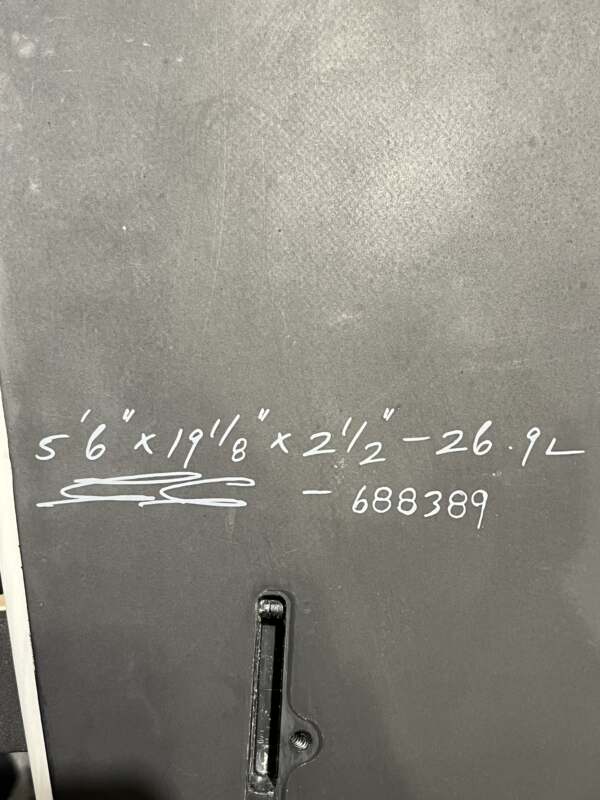 5'6" x 19 1/8" x 2 1/2" - 26.9L
- 688389